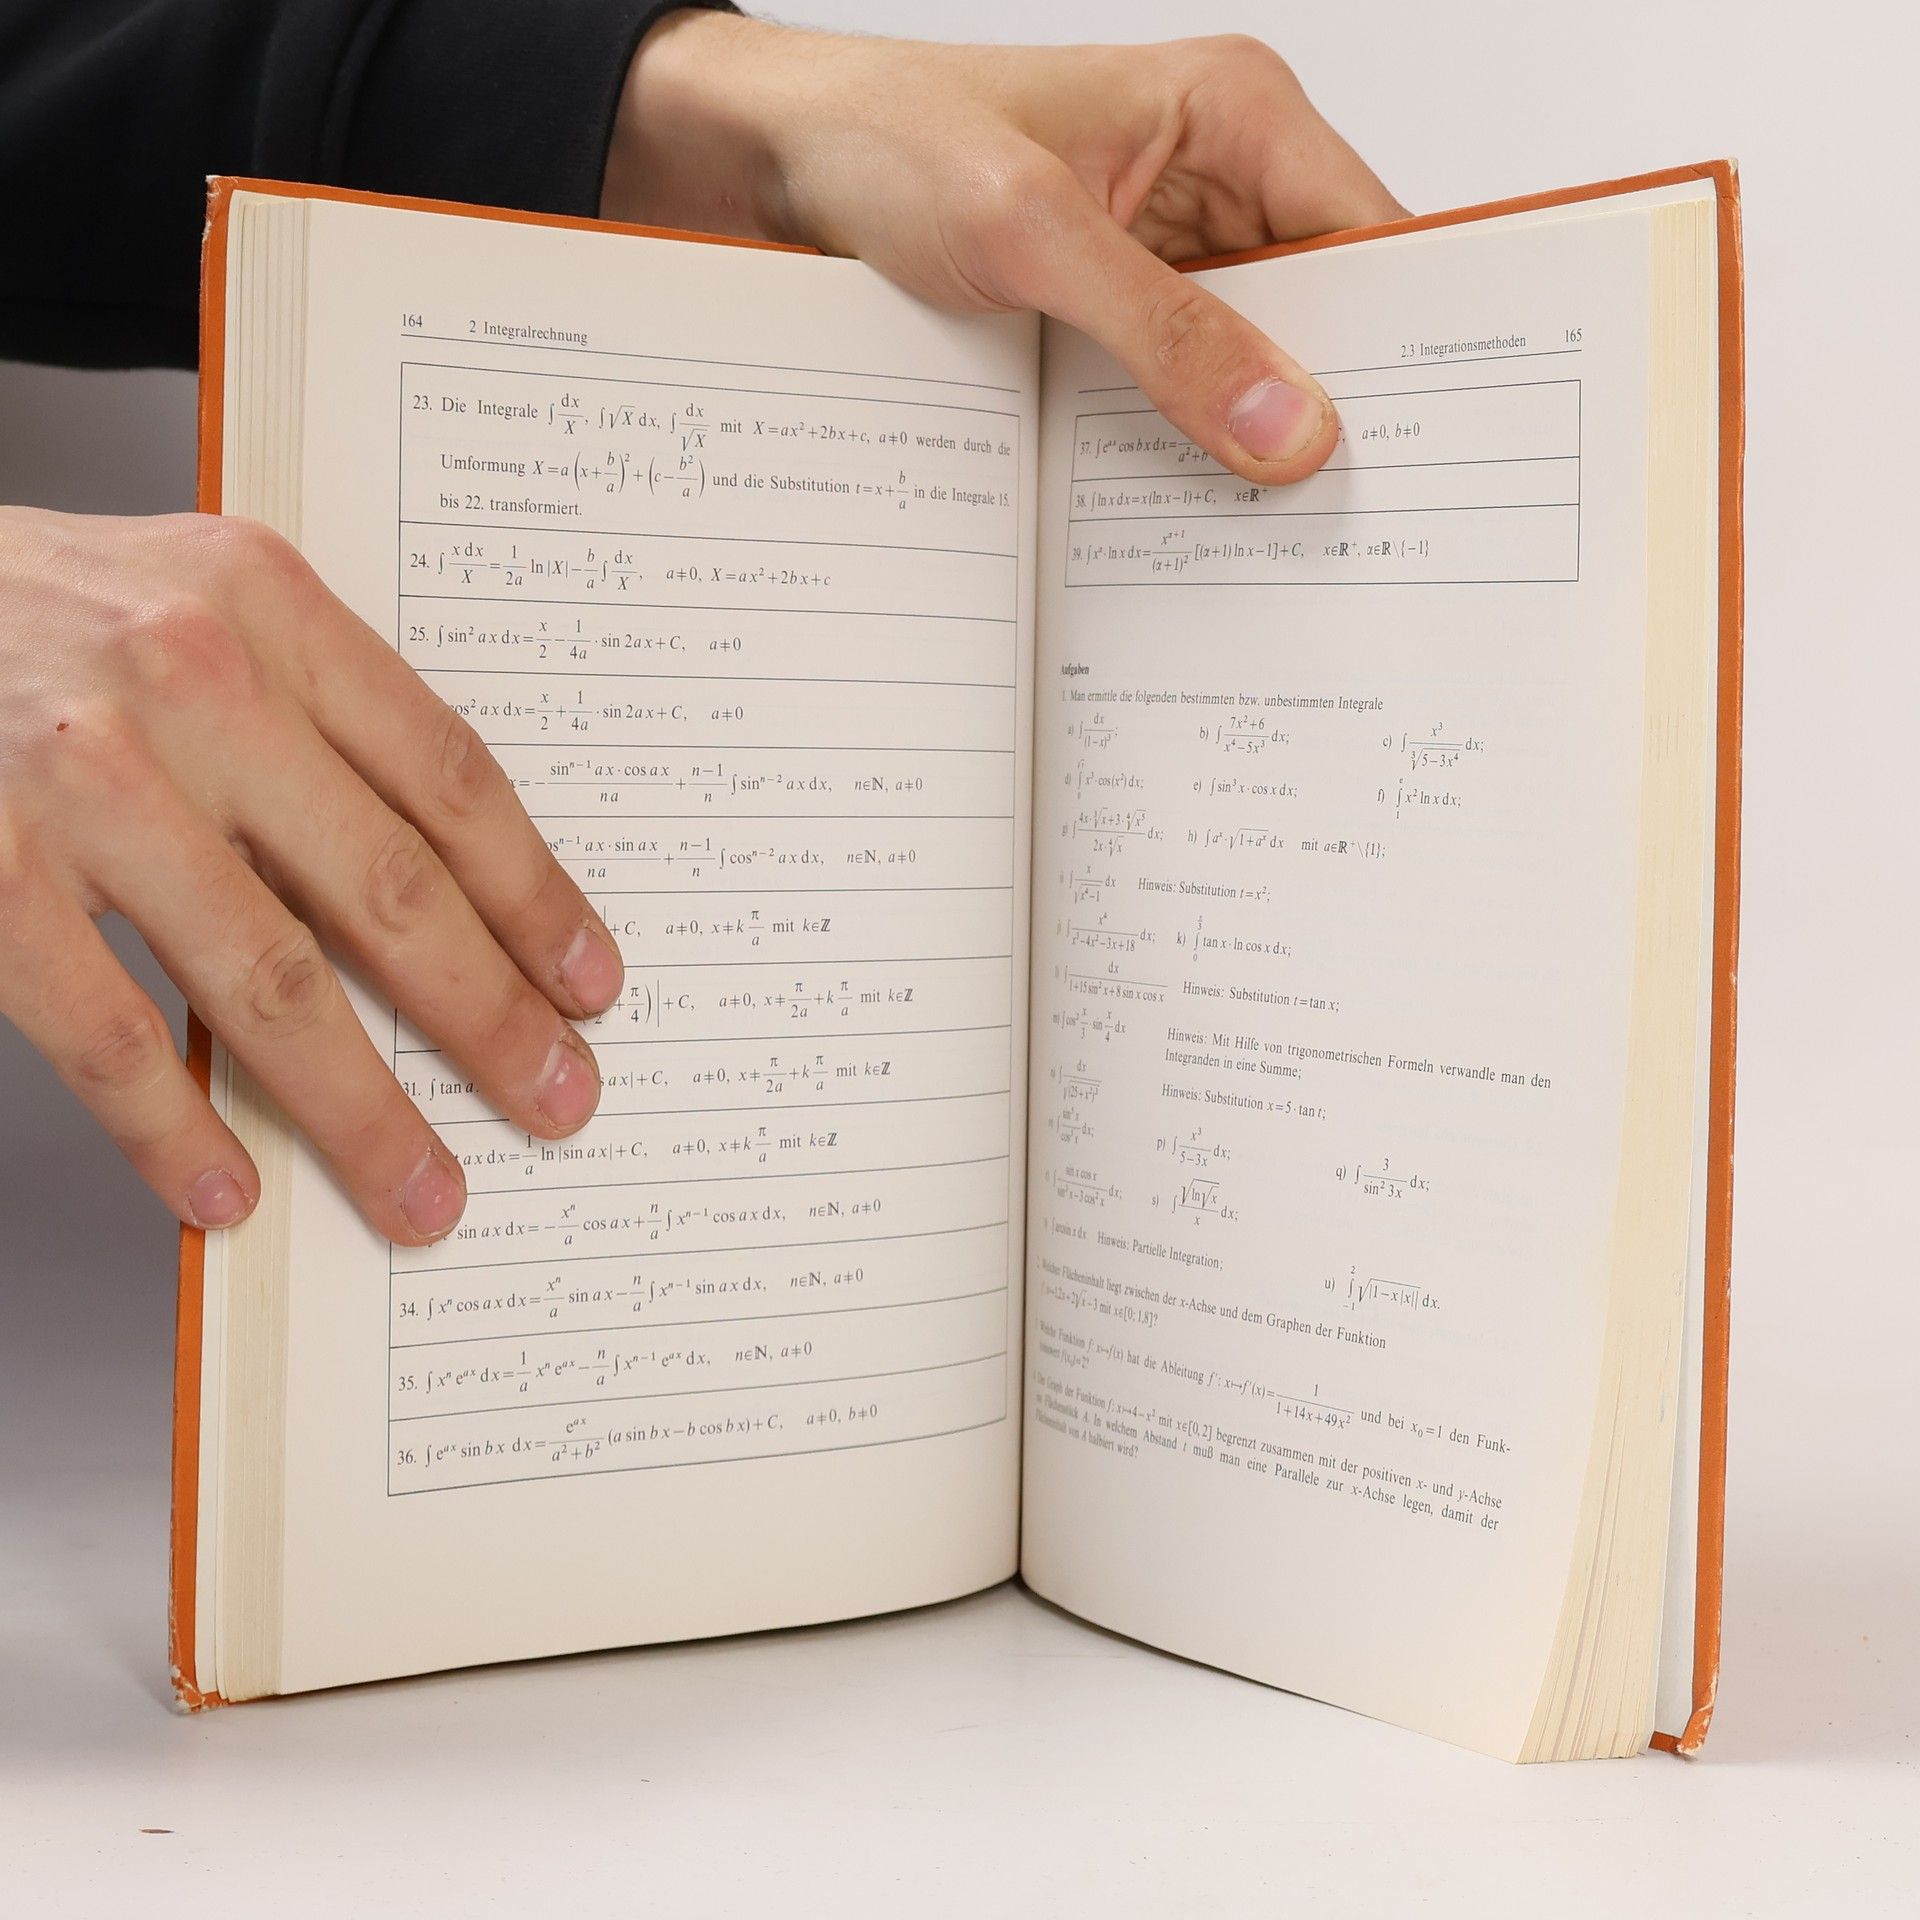 164 2 Integralrechnung
23. Die Integrale ∫dx/X, ∫√X dx, ∫dx/√X mit X=ax²+2bx+c, a≠0 werden durch die
Umformung X=a(x+b/a)²+(c−b²/a) und die Substitution t=x+b/a in die Integrale 15.
bis 22. transformiert.
24. ∫x dx/X=1/2a ln|X|−b/a ∫dx/X, a≠0, X=ax²+2bx+c
25. ∫sin² ax dx=x/2−1/4a·sin 2ax+C, a≠0
cos² ax dx=x/2+1/4a·sin 2ax+C, a≠0
=−sinⁿ⁻¹ ax·cos ax/na+n−1/n ∫sinⁿ⁻² ax dx, n∈ℕ, a≠0
ⁿ⁻¹ ax·sin ax/na+n−1/n ∫cosⁿ⁻² ax dx, n∈ℕ, a≠0
|+C, a≠0, x≠k π/a mit k∈ℤ
+π/4)|+C, a≠0, x≠π/2a+k π/a mit k∈ℤ
31. ∫tan a ax|+C, a≠0, x≠π/2a+k π/a mit k∈ℤ
ax dx=1/a ln|sin ax|+C, a≠0, x≠k π/a mit k∈ℤ
sin ax dx=−xⁿ/a cos ax+n/a ∫xⁿ⁻¹ cos ax dx, n∈ℕ, a≠0
34. ∫xⁿ cos ax dx=xⁿ/a sin ax−n/a ∫xⁿ⁻¹ sin ax dx, n∈ℕ, a≠0
35. ∫xⁿ eᵃˣ dx=1/a xⁿ eᵃˣ−n/a ∫xⁿ⁻¹ eᵃˣ dx, n∈ℕ, a≠0
36. ∫eᵃˣ sin bx dx=eᵃˣ/a²+b² (a sin bx−b cos bx)+C, a≠0, b≠0
2.3 Integrationsmethoden 165
37. ∫eᵃˣ cos bx dx= a²+b a≠0, b≠0
38. ∫ln x dx=x(ln x−1)+C, x∈ℝ⁺
39. ∫x^α·ln x dx=x^(α+1)/(α+1)² [(α+1) ln x−1]+C, x∈ℝ⁺, α∈ℝ\{−1}
Aufgaben
1. Man ermittle die folgenden bestimmten bzw. unbestimmten Integrale
a) ∫dx/(1−x)³; b) ∫7x²+6/x⁴−5x³ dx; c) ∫x³/∛(5−3x⁴) dx;
d) ∫x³·cos(x²) dx; e) ∫sin³ x·cos x dx; f) ∫₁ᵉ x² ln x dx;
g) dx; h) ∫aˣ·√(1+aˣ) dx mit a∈ℝ⁺\{1};
i) ∫x/√(x⁴−1) dx Hinweis: Substitution t=x²;
j) ∫x⁴/x³−4x²−3x+18 dx; k) ∫tan x·ln cos x dx;
l) ∫dx/1+15 sin² x+8 sin x cos x Hinweis: Substitution t=tan x;
m) ∫cos² x/3·sin x/4 dx Hinweis: Mit Hilfe von trigonometrischen Formeln verwandle man den
Integranden in eine Summe;
n) ∫dx/√(25+x²)³ Hinweis: Substitution x=5·tan t;
dx; p) ∫x³/5−3x dx; q) ∫3/sin² 3x dx;
∫sin x cos x/sin² x−3 cos² x dx; s) ∫ dx;
∫arcsin x dx Hinweis: Partielle Integration; u) ∫₋₁² √|1−x|x|| dx.
2. Welcher Flächeninhalt liegt zwischen der x-Achse und dem Graphen der Funktion
mit x∈[0; 1,8]?
3. Welche Funktion f: x↦f(x) hat die Ableitung f′: x↦f′(x)=1/1+14x+49x² und bei x₀=1 den Funk-
tionswert f(x₀)=2?
4. Der Graph der Funktion f: x↦4−x² mit x∈[0,2] begrenzt zusammen mit der positiven x- und y-Achse
ein Flächenstück A. In welchem Abstand t muß man eine Parallele zur x-Achse legen, damit der
Flächeninhalt von A halbiert wird?